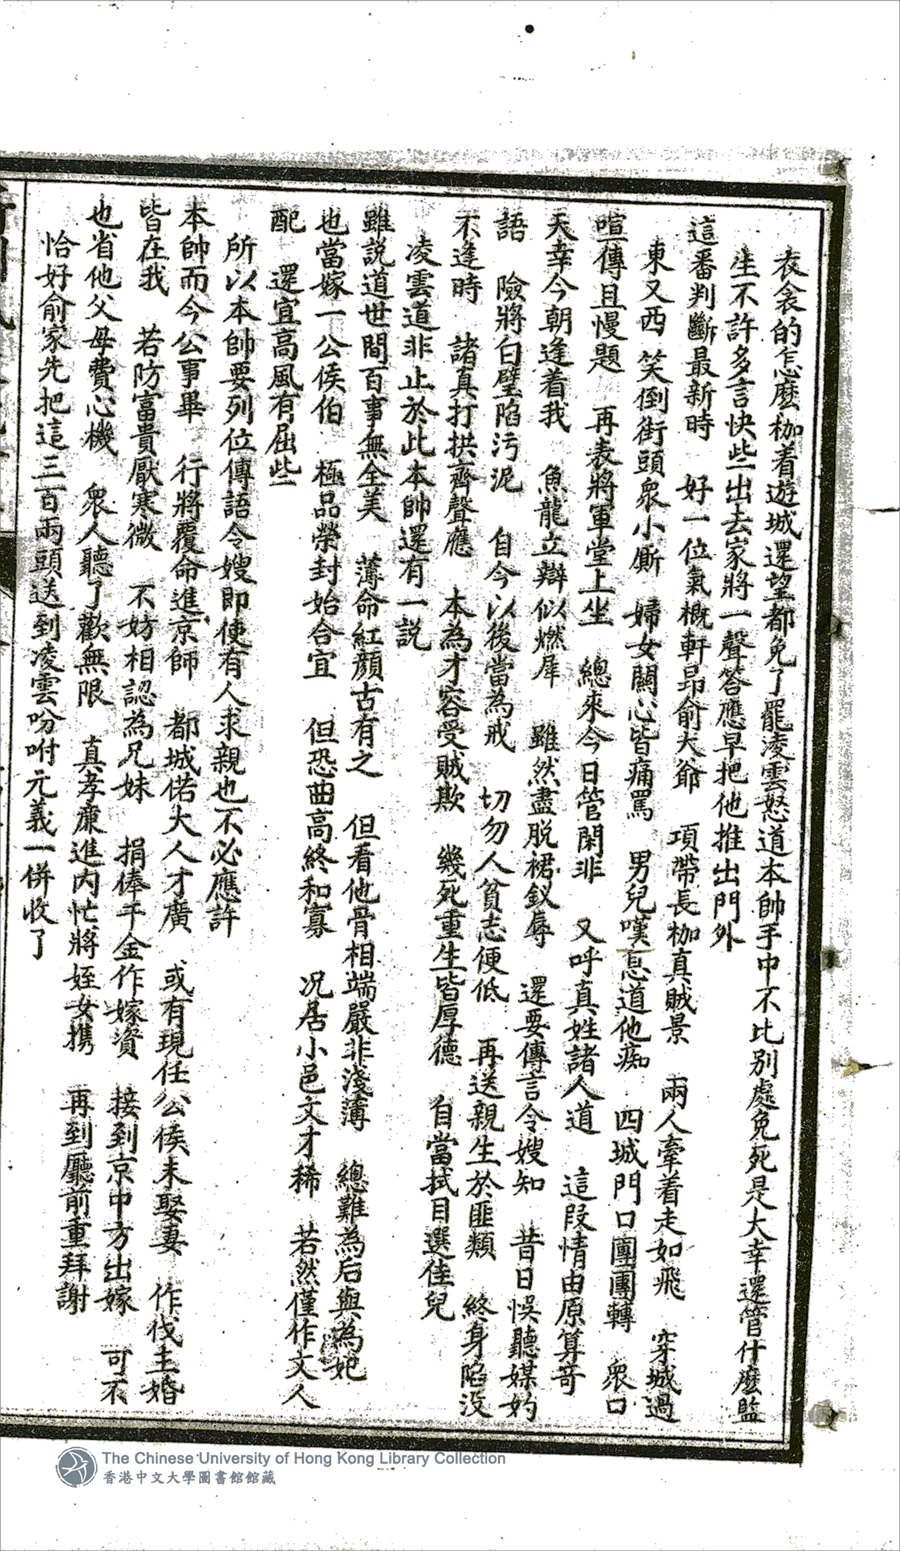 衣衾的怎麽枷着遊城還望都免了罷凌雲怒道本帥手中不比別處免死是大幸還管什麽監
生不許多言快些出去家將一聲答應早把他推出門外
這番判斷最新時　好一位氣概軒昂俞大爺　項帶長枷真賊景　兩人牽着走如飛　穿城過
東又西　笑倒街頭衆小厮　婦女關心皆痛罵　男兒嘆息道他痴　四城門口團團轉　衆口
喧傳且慢題　再表將軍堂上坐　總來今日管閑非　又呼真姓諸人道　這叚情由原算奇
天幸今朝逢着我　魚龍立辯似燃犀　雖然盡脱裙釵辱　還要傳言令嫂知　昔日悞聽媒妁
語　險將白璧陷污泥　自今以後當為戒　切勿人貧志便低　再送親生於匪類　終身陷没
不逢時　諸真打拱齊聲應　本為才容受賊欺　幾死重生皆厚德　自當拭目選佳兒
凌雲道非止於此本帥還有一説
雖説道世間百事無全美　薄命紅顔古有之　但看他骨相端嚴非淺薄　總難為后與為妃
也當嫁一公侯伯　極品榮封始合宜　但恐曲高終和寡　况居小邑文才稀　若然僅作文人
配　還宜高風有屈些
所以本帥要列位傳語令嫂即使有人求親也不必應許
本帥而今公事畢　行將覆命進京師　都城偌大人才廣　或有現任公侯未娶妻　作伐主婚
皆在我　若防富貴厭寒微　不妨相認為兄妹　捐俸千金作嫁資　接到京中方出嫁　可不
也省他父母費心機　衆人聽了歡無限　真孝廉進内忙將姪女携　再到廳前重拜謝
恰好俞家先把這三百兩頭送到凌雲吩咐元義一併收了
The Chinese University of Hong Kong Library Collection
香港中文大學圖書館館藏